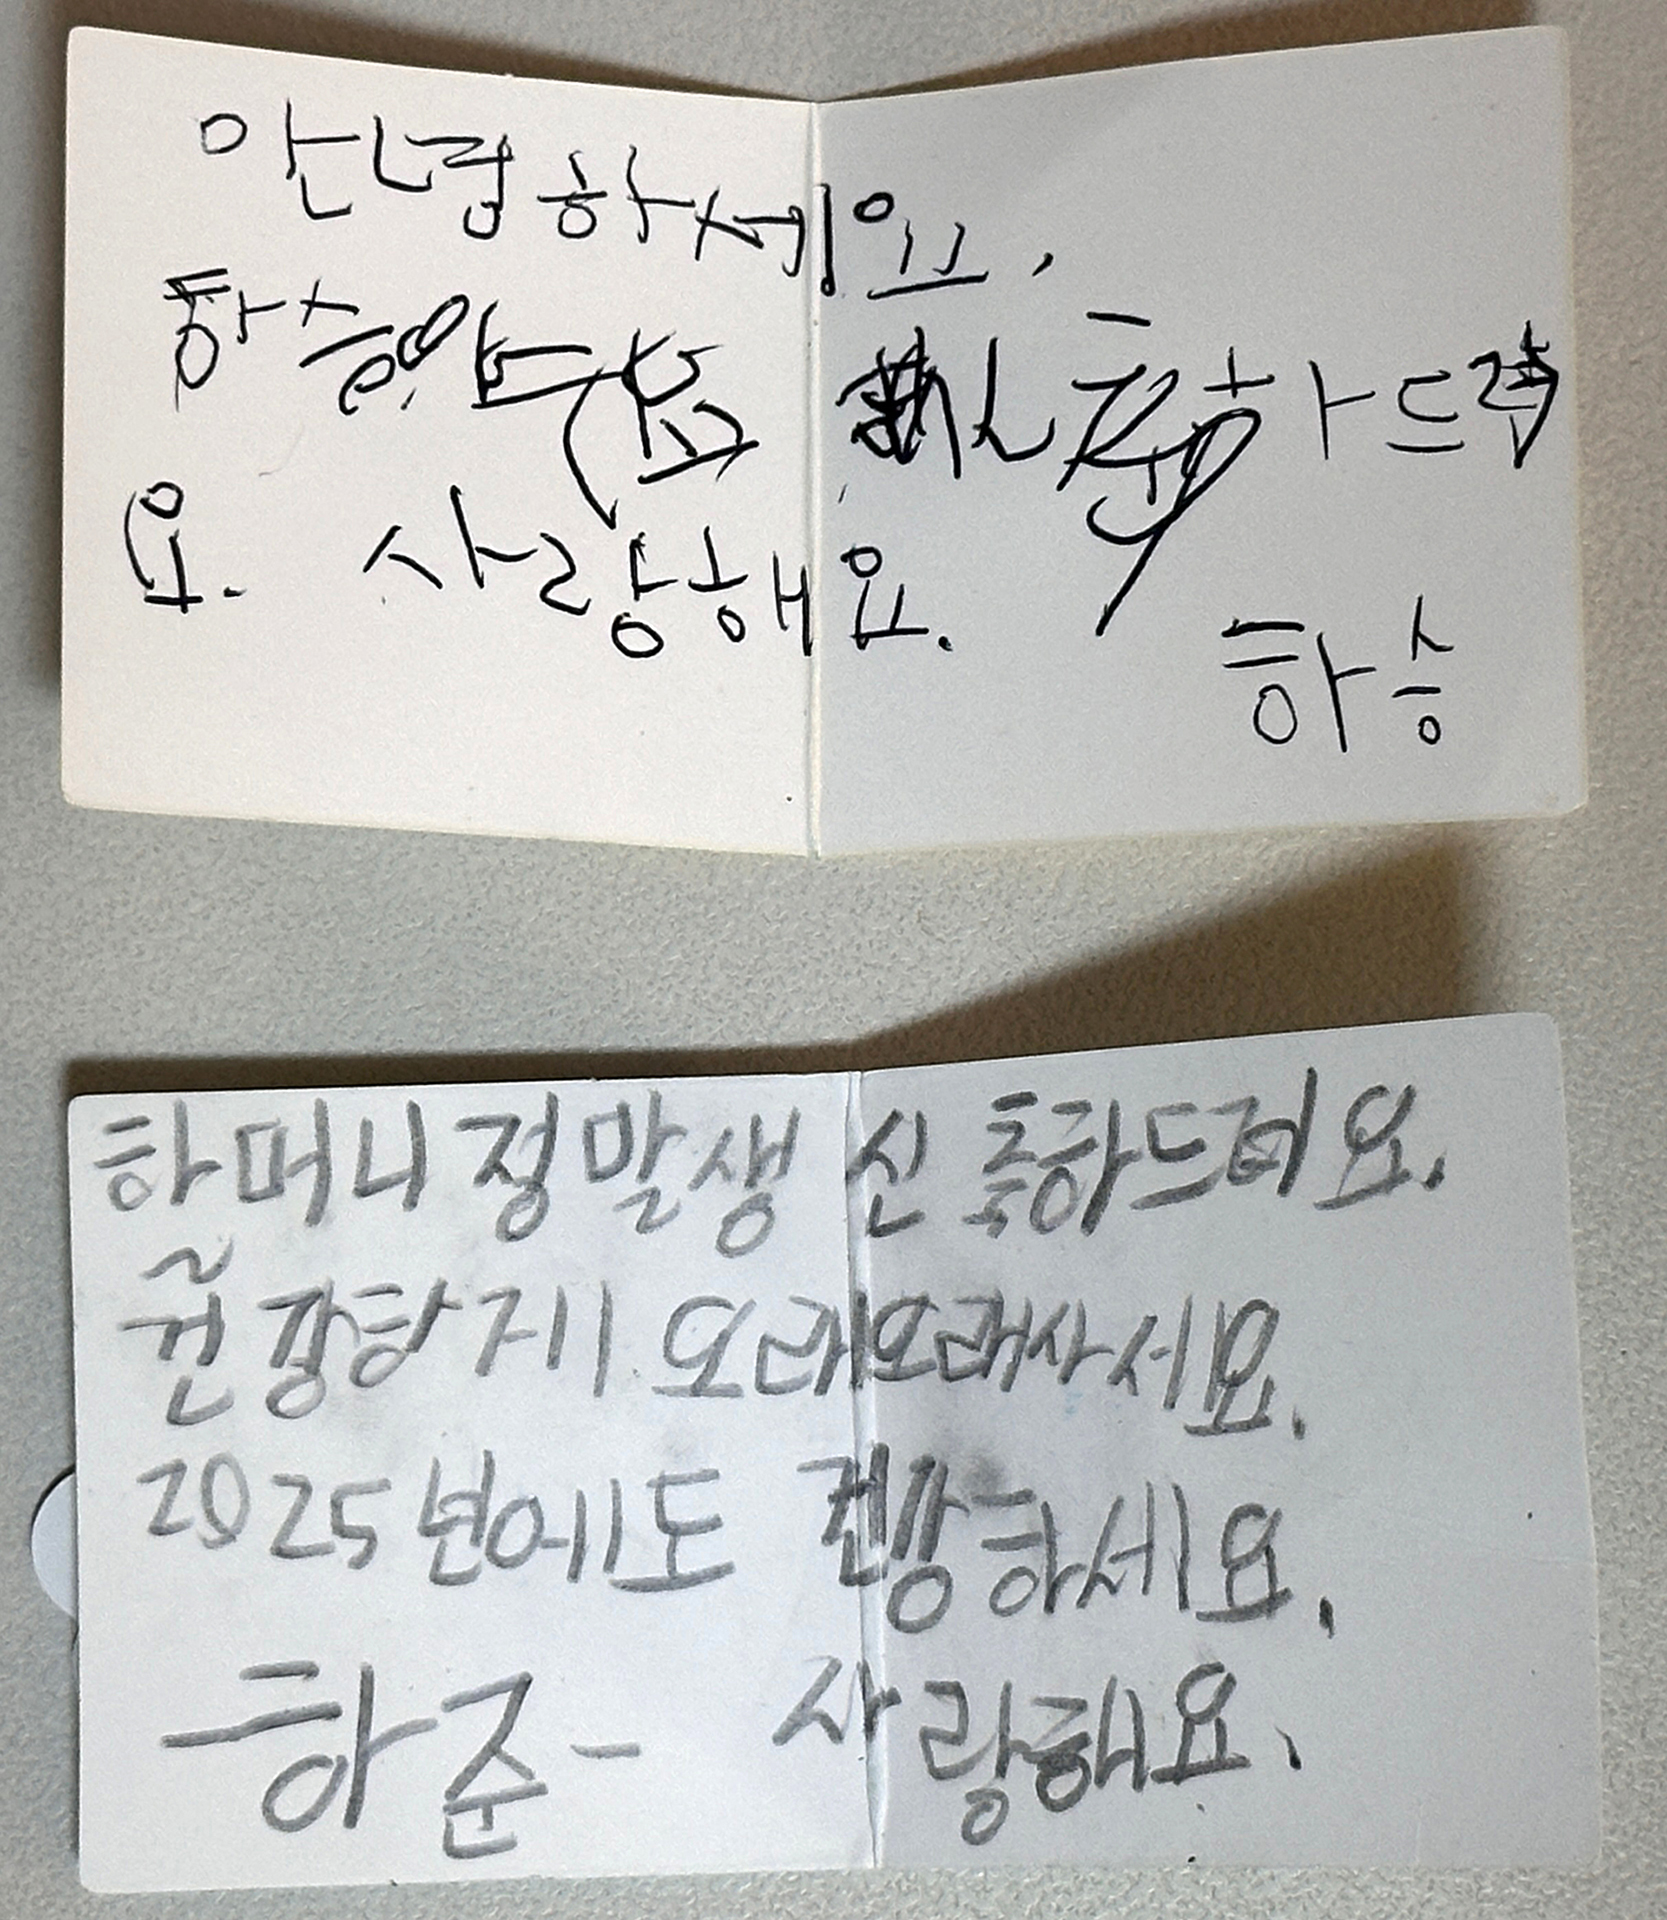 안녕하세요,
하승
요. 사랑해요.
하승
하머니 정말 생신 축하드려요.
건강하게 오래오래사세요.
2025년에도 건강하세요.
하준- 사랑해요.